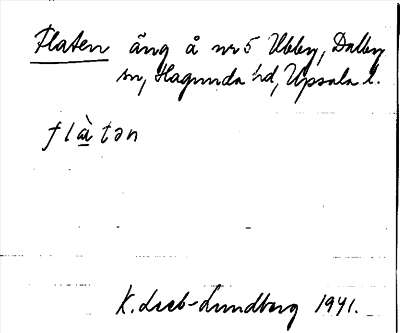 Flaten äng å nr 5 Ubby, Dalby
sn, Hagunda hd, Uppsala l.
flà̱tən
K. Lieb-Lundberg 1941.